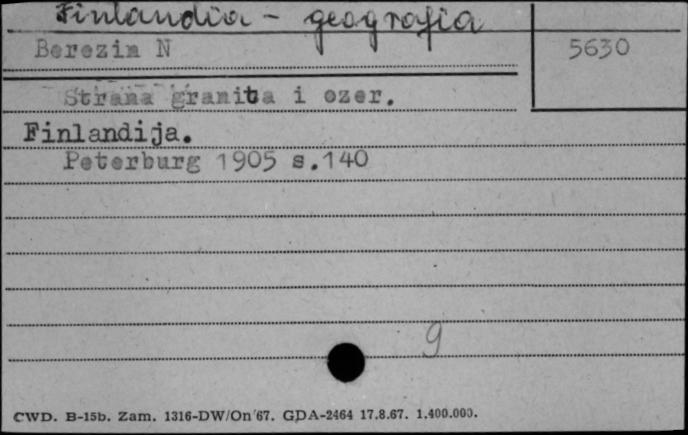 Finlandia - geografia
Berezin N
5630
Strana granita i ozer.
Finlandija.
Peterburg 1905 s.140
g
CWD. B-15b. Zam. 1316-DW/On/67. GDA-2464 17.8.67. 1.400.000.